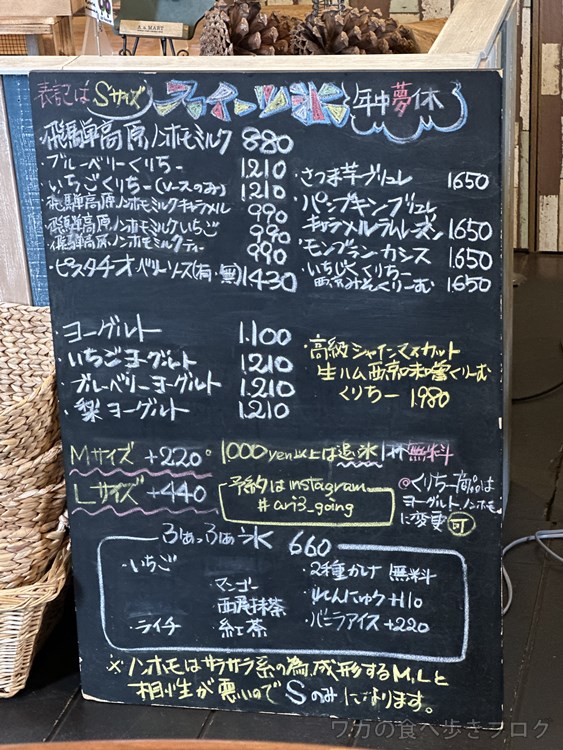 A MART
表記はSサイズ
スイーツ氷
年中夢休
・飛騨高原ノンホモミルク 880
・ブルーベリーくりぃー 1210
・いちごくりぃー(ソースのみ) 1210
・飛騨高原ノンホモミルクキャラメル 990
・飛騨高原ノンホモミルクいちご 990
・飛騨高原ノンホモミルクティー 990
・ピスタチオベリーソース(有・無) 1430
・さつま芋ブリュレ 1650
・パンプキンブリュレ
キャラメルラムレーズン 1650
・モンブランカシス 1650
・いちじくくりちー
西京みそくりーむ 1650
・ヨーグルト 1.100
・いちごヨーグルト 1.210
・ブルーベリーヨーグルト 1.210
・梨ヨーグルト 1.210
・高級シャインマスカット
生ハム西京味噌くりーむ
くりちー 1.980
Mサイズ +220
Lサイズ +440
1000yen以上は追氷1杯無料
予約はinstagram
#ari3_going
◎くりちー商品は
ヨーグルト、ノンホモ
に変更可
ふぁっふぁ氷 660
・いちご
マンゴー
西尾抹茶
・ライチ
紅茶
・2種かけ 無料
・れんにゅう +110
・バニラアイス +220
※ノンホモはサラサラ系の為、成形するM,Lと
相性が悪いのでSのみになります。
ワガの食べ歩きブログ